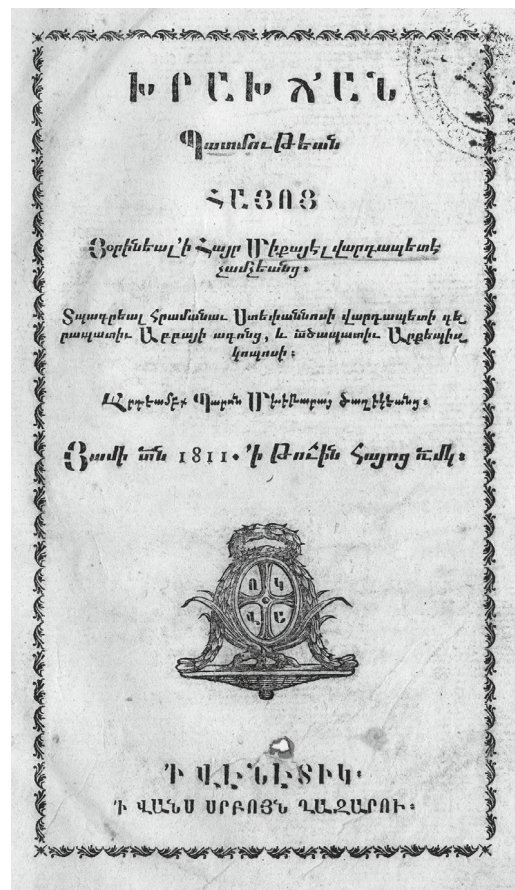 ԽՐԱԽՃԱՆ
Պատմութեան
ՀԱՅՈՑ
Յօրինեալ 'ի Հայր Միքայէլ վարդապետէ
չամչեանց։
Տպագրեալ հրամանաւ Ստեփաննոսի վարդապետի գե֊
րապատիւ Աբբայի ազօնց, և ածապատիւ Արքեպիս֊
կոպոսի։
Պարոն Մխիթարայ
Յամի տն 1811. 'ի Թուին Հայոց ռմկ։
Ո Կ
Վ Ա
'Ի ՎԷՆԷՏԻԿ։
'Ի ՎԱՆՍ ՍՐԲՈՅՆ ՂԱԶԱՐՈՒ։